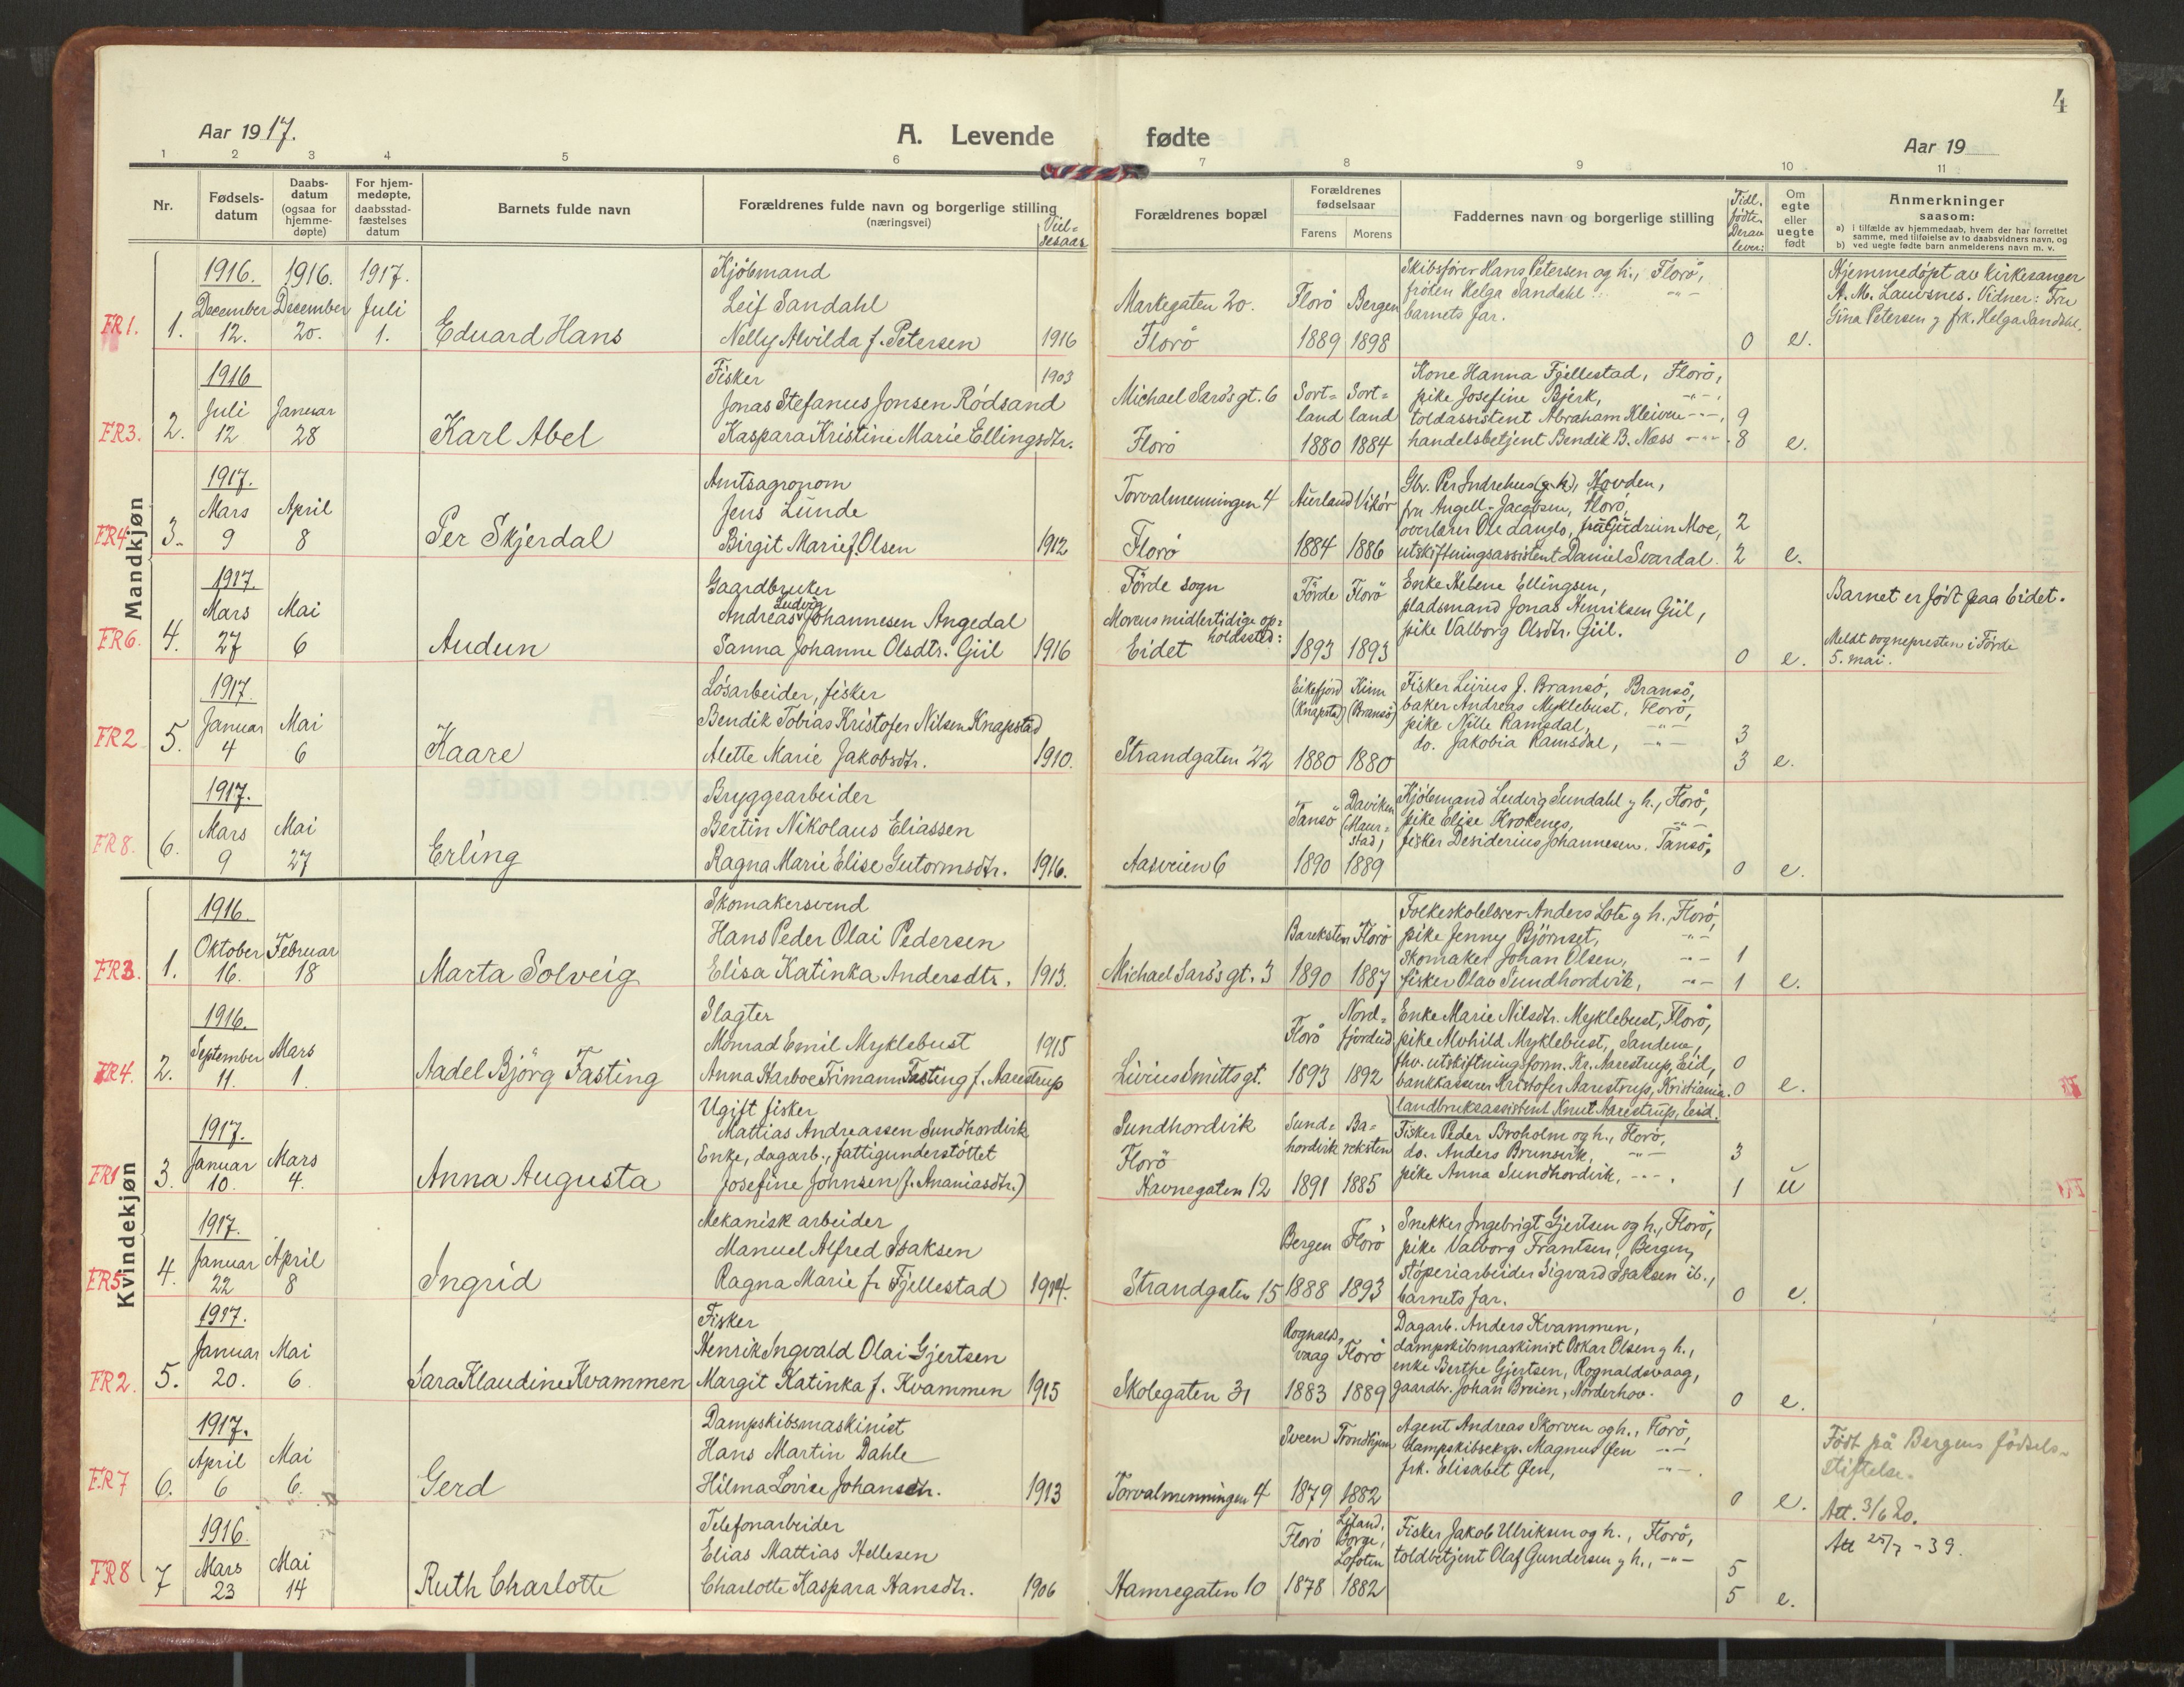 4
Aar 1917.
A. Levende fødte
Aar 19
1 2 3 4 5 6 7 8 9 10 11
Nr.
Fødsels-
datum
Daabs-
datum
(ogsaa for
hjemme-
døpte)
For hjem-
medøpte,
daabsstad-
fæstelses
datum
Barnets fulde navn
Forældrenes fulde navn og borgerlige stilling
(næringsvei)
Viel=
sesaar
Forældrenes bopæl
Forældrenes
fødselsaar
Farens Morens
Faddernes navn og borgerlige stilling
Tidl.
födte.
Derav
lever:
Om
egte
eller
uegte
født
Anmerkninger
saasom:
a) i tilfælde av hjemmedaab, hvem der har forrettet
samme, med tilføielse av to daabsvidners navn, og
b) ved uegte fødte barn anmelderens navn m. v.
Mandkjøn
FR1. 1.
1916.
December
12.
1916.
December
20.
1917.
Juli
1.
Eduard Hans
Kjöbmand
Leif Sandahl
Nelly Alvilda f. Petersen 1916
Markegaten 20.
Florö
Florö Bergen
1889 1898
Skibsfører Hans Petersen og h., Florö,
fröken Helga Sandahl -"-
barnets far.
0 e.
Hjemmedöpt av kirkesanger
A. M. Lauvsnes. Vidner: Fru
Gina Petersen g frk. Helga Sandahl.
FR3. 2.
1916
Juli
12
Januar
28
Karl Abel
Fisker 1903
Jonas Stefanus Jonsen Rödsand
Kaspara Kristine Marie Ellingsdtr.
Michael Sars's gt. 6
Florö
Sort= Sort=
land land
1880 1884
Kone Hanna Fjellestad, Florö,
pike Josefine Bjerk, -"-
toldassistent Abraham Kleiven -"-,
handelsbetjent Bendik B. Næss -"-.
9
8 e.
FR4. 3.
1917.
Mars
9
April
8
Per Skjerdal
Amtsagronom
Jens Lunde
Birgit Marie f. Olsen 1912
Torvalmenningen 4
Florö
Aurland Vikör
1884 1886
Gbr. Per Indrehus (g. h), Hovden,
fru Angell-Jacobsen, Florö,
overlærer Ole Langlo, fru Gudrun Moe,
utskiftningsassistent Daniel Svardal.
2
2 e.
FR6. 4.
1917.
Mars
27
Mai
6
Audun
Gaardbruker
Andreas Ludvig Johannesen Angedal
Sanna Johanne Olsdtr. Giil 1916
Förde sogn
Morens midlertidige op=
holdssted:
Eidet
Förde Florö
1893 1893
Enke Helene Ellingsen,
pladsmand Jonas Henriksen Giil,
pike Valborg Olsdtr. Giil.
0 e.
Barnet er födt paa Eidet.
Meldt sognepresten i Förde
5. mai.
FR2 5.
1917.
Januar
4
Mai
6
Kaare
Lösarbeider, fisker
Bendik Tobias Kristofer Nilsen Knapstad
Alette Marie Jakobsdtr. 1910.
Strandgaten 22
Eikefjord Kinn
(Knapstad) (Bransö)
1880 1880
Fisker Livius J. Bransö, Bransö,
baker Andreas Myklebust, Florö,
pike Nille Ramsdal, -"-
do. Jakobia Ramsdal, -"-
3
3 e.
FR8. 6.
1917.
Mars
9
Mai
27
Erling
Bryggearbeider
Bertin Nikolaus Eliassen
Ragna Marie Elise Gutormsdtr. 1916.
Aasveien 6
Tansö Daviken
(Maur=
stad)
1890 1889
Kjöbmand Ludvig Sundahl g h., Florö,
pike Elise Krokenes, -"-
fisker Desiderius Johannesen, Tansö.
0 e.
Kvindekjøn
FR3. 1.
1916.
Oktober
16.
Februar
18
Marta Solveig
Skomakersvend
Hans Peder Olai Pedersen
Elisa Katinka Andersdtr. 1913.
Michael Sars's gt. 3
Bareksten Florö
1890 1887
Folkeskolelærer Anders Lote g h., Florö,
pike Jenny Björnset, -"-
Skomaker Johan Olsen, -"-
fisker Olav Sundhordvik, -"-
1
1 e.
FR4. 2.
1916.
September
11.
Mars
1.
Aadel Björg Fasting
Slagter
Monrad Emil Myklebust 1915
Anna Harboe Frimann Fasting f. Aarestrup
Livius Smitts gt.
Florö Nord=
fjordeid
1893 1892
Enke Marie Nilsdtr. Myklebust, Florö,
pike Alvhild Myklebust, Sandene,
fhv. utskiftningsform. Kr. Aarestrup, Eid,
bankkasserer Kristofer Aarestrup, Kristiania.
landbruksassistent Knut Aarestrup, Eid.
0
0 e.
FR1 3.
1917.
Januar
10.
Mars
4.
Anna Augusta
Ugift fisker
Mattias Andreassen Sundhordvik
Enke, dagarb., fattigunderstöttet
Josefine Johnsen (f. Ananiasdtr.)
Sundhordvik
Florö
Havnegaten 12
Sund= Ba=
hordvik reksten
1891 1885
Fisker Peder Broholm og h., Florö,
do. Anders Brunsvik, -"-
pike Anna Sundhordvik, -"-.
3
1 u
FR5 4.
1917.
Januar
22
April
8
Ingrid
Mekanisk arbeider
Manuel Alfred Isaksen
Ragna Marie f. Fjellestad 1914.
Strandgaten 15
Bergen Florö
1888 1893
Snekker Ingebrigt Gjertsen og h., Florö,
pike Valborg Frantsen, Bergen,
støperiarbeider Sigvard Isaksen ib.,
barnets far.
0 e.
FR2. 5.
1917.
Januar
20.
Mai
6.
Sara Klaudine Kvammen
Fisker
Henrik Ingvald Olai Gjertsen
Margit Katinka f. Kvammen 1915
Skolegaten 31
Rognalds,
vaag Florö
1883 1889
Dagarb. Anders Kvammen,
dampskibsmaskinist Oskar Olsen g h.,
enke Berthe Gjertsen, Rognaldsvaag,
gaardbr. Johan Breien, Norderhov.
0 e.
FR7 6.
1917.
April
6
Mai
6.
Gerd
Dampskibsmaskinist
Hans Martin Dahle
Hilma Lovise Johansdtr. 1913
Torvalmenningen 4
Sveen Trondhjem
1879 1882
Agent Andreas Skorven og h., Florö,
dampskibseksp. Magnus Øen -"-
frk. Elisabet Øen, -"-.
0 e.
Født på Bergens fødsels-
stiftelse.
Att. 3/6 20.
FR8 7
1916.
Mars
23
Mai
14
Ruth Charlotte
Telefonarbeider
Elias Mattias Hellesen
Charlotte Kaspara Hansdtr. 1906
Hamregaten 10
Florö Borge,
Lofoten
1878 1882
Fisker Jakob Ulriksen og h., Florö,
toldbetjent Olaf Gundersen g h., -"-
5
5 e.
Att 25/7 - 39.